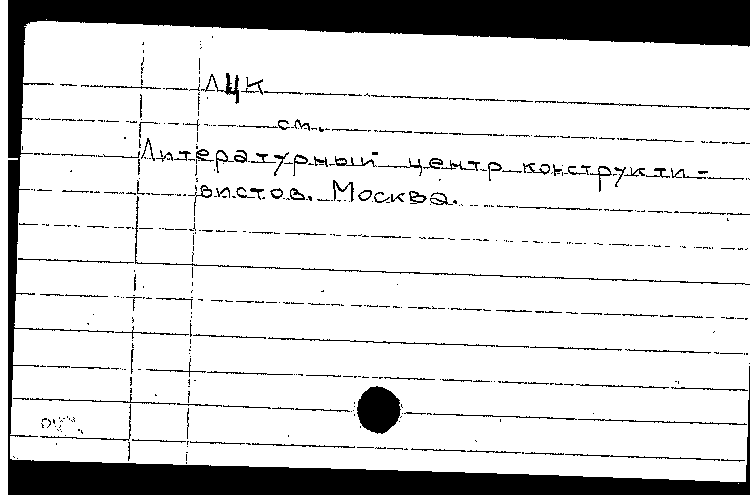 ЛЦК
см.
Литературный центр конструкти-
вистов. Москва.